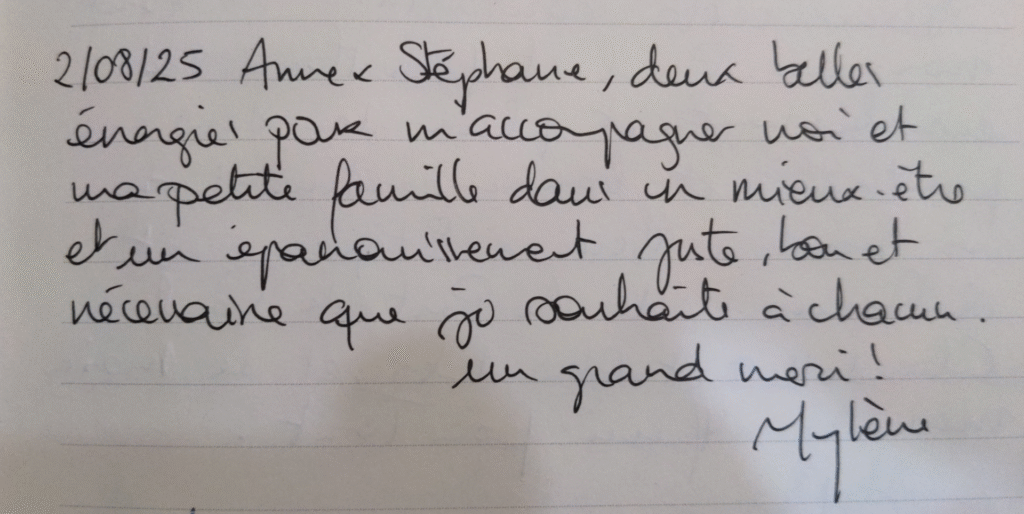 2/08/25 Anne & Stéphane, deux belles
énergies pour m'accompagner moi et
ma petite famille dans un mieux-être
et un épanouissement juste, bon et
nécessaire que je souhaite à chacun.
un grand merci !
Mylène